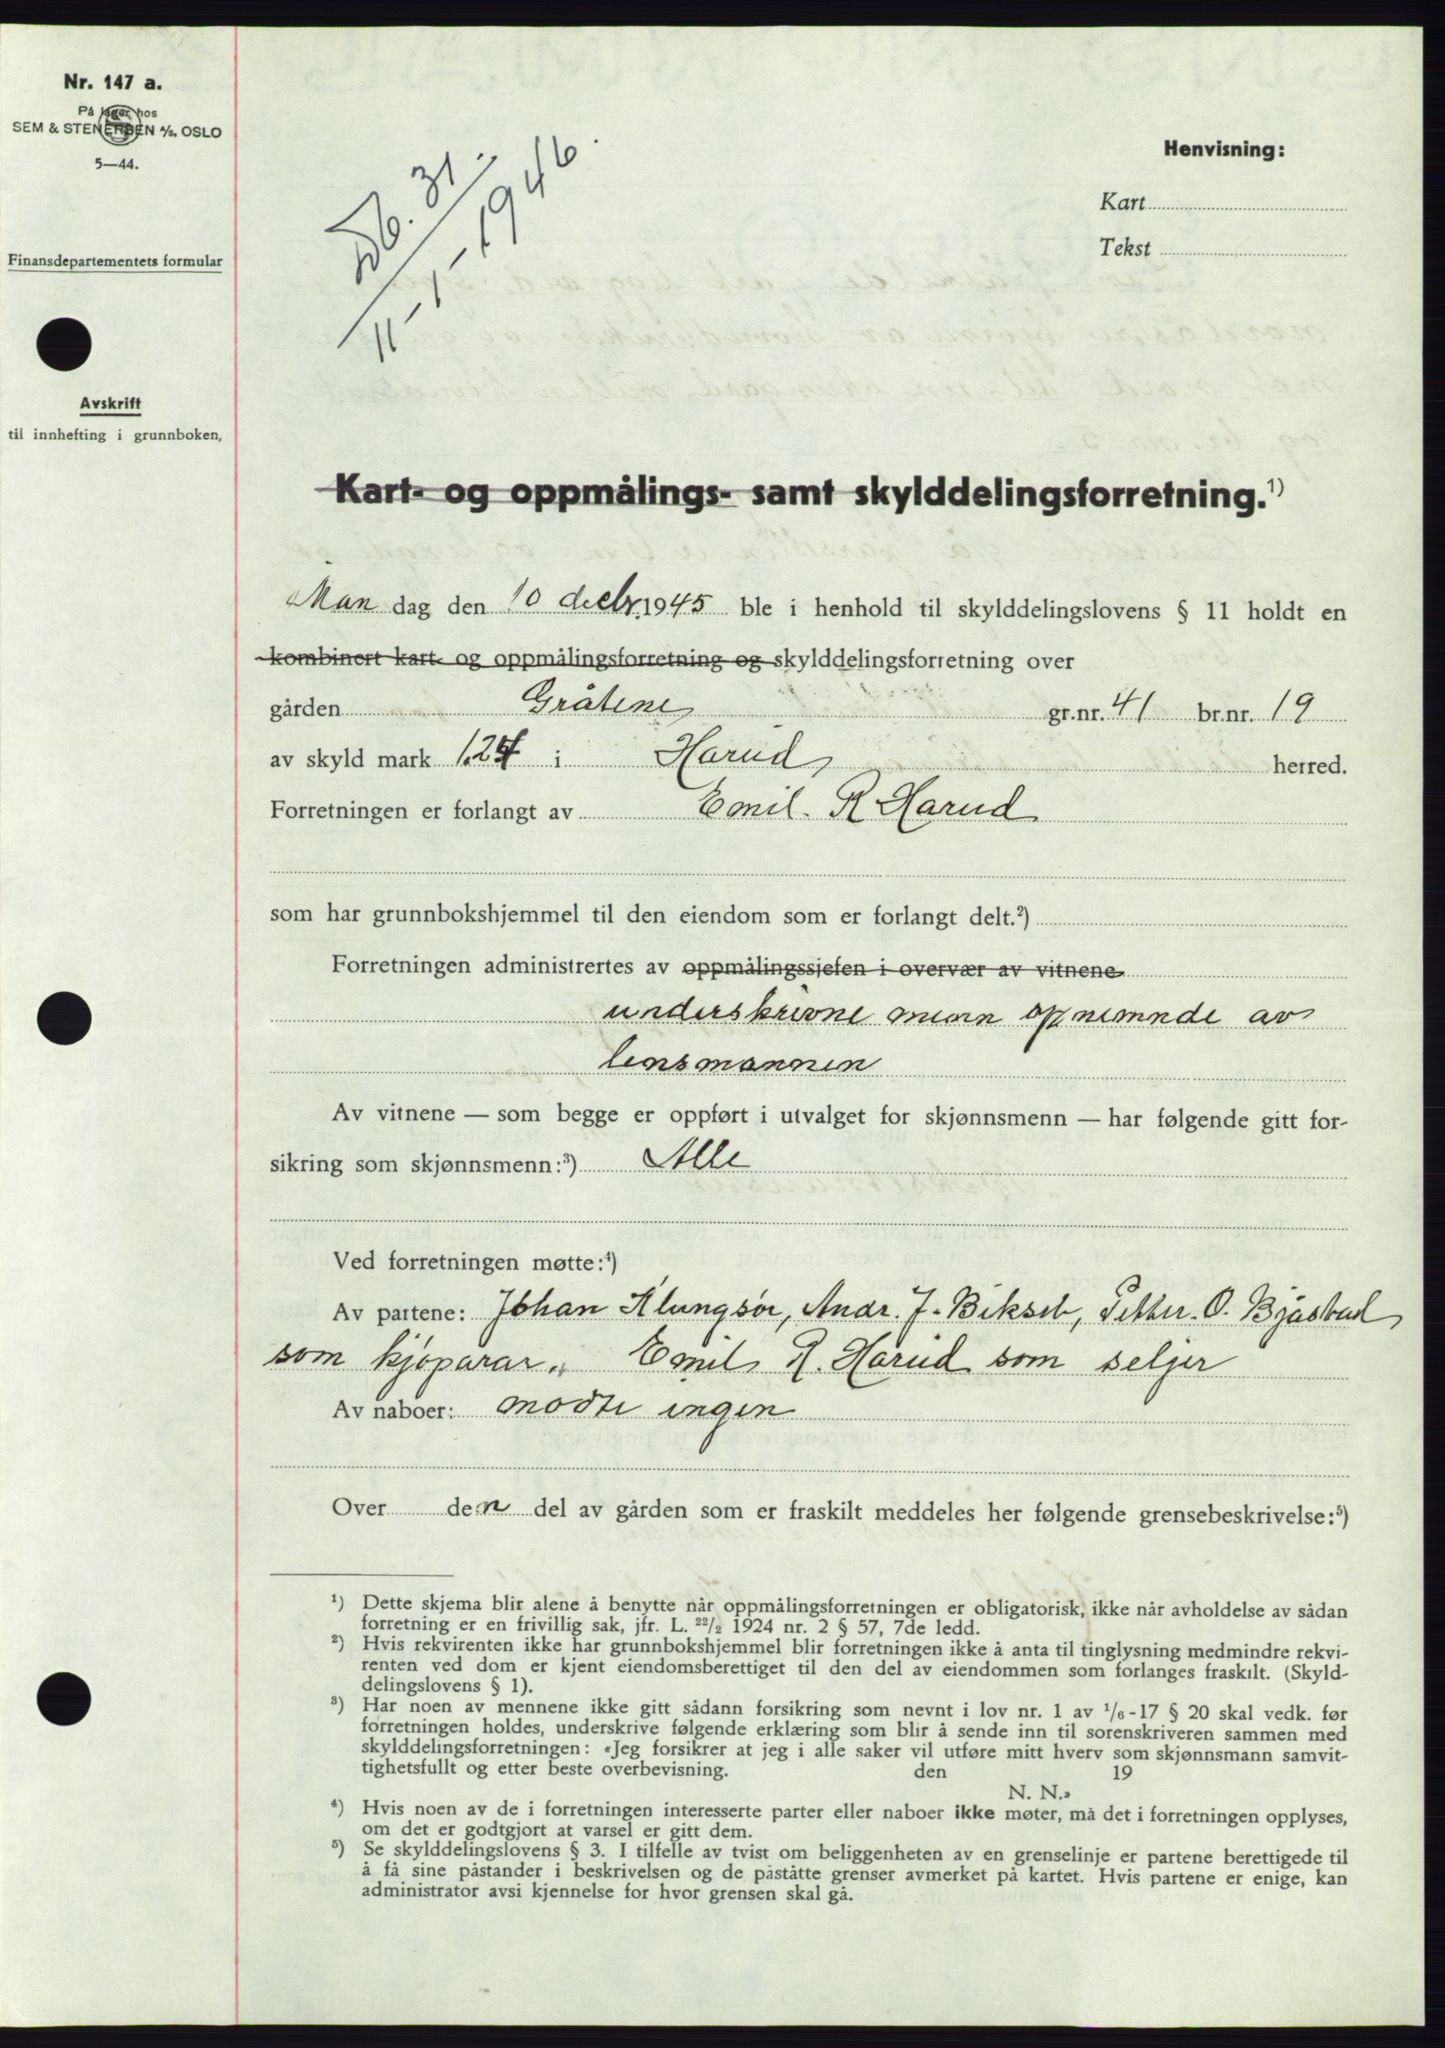 Nr. 147 a.
På lager hos
SEM & STENERSEN A/S. OSLO
5—44.
Finansdepartementets formular
Avskrift
til innhefting i grunnboken,
Db. 31.
11-1-1946.
Henvisning:
Kart
Tekst
Kart- og oppmålings- samt skylddelingsforretning.¹)
Man dag den 10 decbr. 1945 ble i henhold til skylddelingslovens § 11 holdt en
kombinert kart- og oppmålingsforretning og skylddelingsforretning over
gården Gråtene gr.nr. 41 br.nr. 19
av skyld mark 1.24 i Harud herred.
Forretningen er forlangt av Emil R Harud
som har grunnbokshjemmel til den eiendom som er forlangt delt.²)
Forretningen administrertes av oppmålingssjefen i overvær av vitnene
underskrevne menn opnemnde av
lensmannen
Av vitnene — som begge er oppført i utvalget for skjønnsmenn — har følgende gitt for-
sikring som skjønnsmenn:³) Alle
Ved forretningen møtte:⁴)
Av partene: Johan Klungsör, Andr. J. Bekseb, Petter O. Bjåstad
som kjöparar. Emil R. Harud som seljer
Av naboer: modte ingen
Over den del av gården som er fraskilt meddeles her følgende grensebeskrivelse:⁵)
¹) Dette skjema blir alene å benytte når oppmålingsforretningen er obligatorisk, ikke når avholdelse av sådan
forretning er en frivillig sak, jfr. L. 22/2 1924 nr. 2 § 57, 7de ledd.
²) Hvis rekvirenten ikke har grunnbokshjemmel blir forretningen ikke å anta til tinglysning medmindre rekvi-
renten ved dom er kjent eiendomsberettiget til den del av eiendommen som forlanges fraskilt. (Skyld-
delingslovens § 1).
³) Har noen av mennene ikke gitt sådann forsikring som nevnt i lov nr. 1 av 1/6-17 § 20 skal vedk. før
forretningen holdes, underskrive følgende erklæring som blir å sende inn til sorenskriveren sammen med
skylddelingsforretningen: «Jeg forsikrer at jeg i alle saker vil utføre mitt hverv som skjønnsmann samvit-
tighetsfullt og etter beste overbevisning. den 19
N. N.»
⁴) Hvis noen av de i forretningen interesserte parter eller naboer ikke møter, må det i forretningen opplyses,
om det er godtgjort at varsel er gitt dem.
⁵) Se skylddelingslovens § 3. I tilfelle av tvist om beliggenheten av en grenselinje er partene berettigede til
å få sine påstander i beskrivelsen og de påståtte grenser avmerket på kartet. Hvis partene er enige, kan
administrator avsi kjennelse for hvor grensen skal gå.